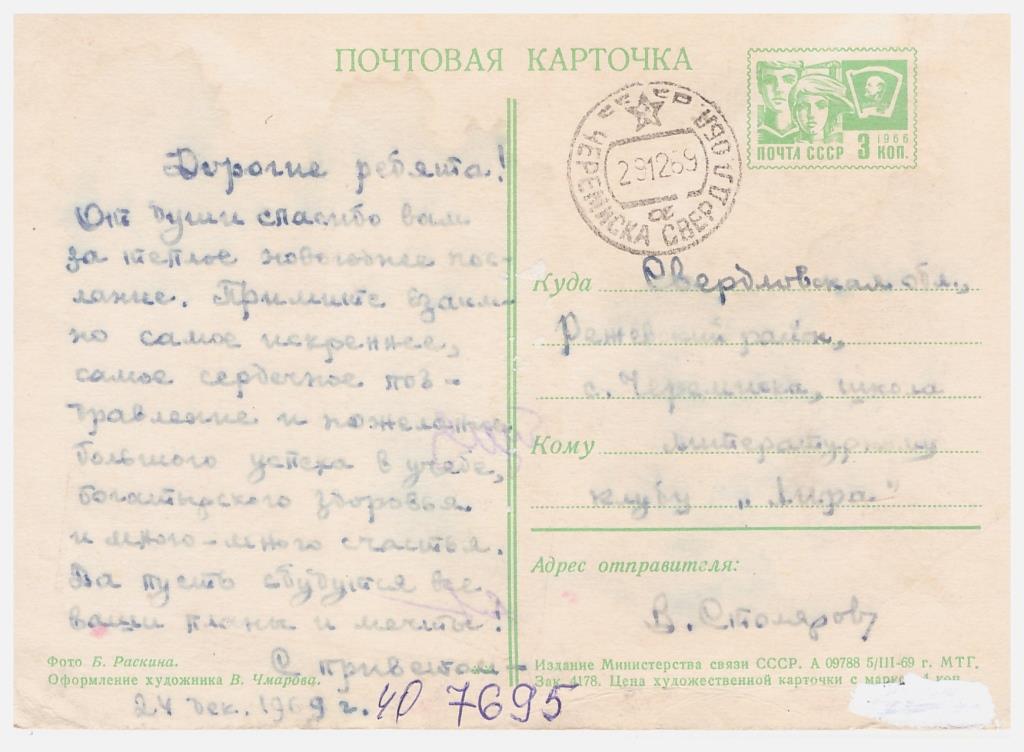 ПОЧТОВАЯ КАРТОЧКА
ПОЧТА СССР 3 КОП.
1966
ЧЕРЕМИСКА СВЕРДЛ. ОБЛ
291269
Дорогие ребята!
От души спасибо вам
за теплое новогоднее пос-
лание. Примите взаим-
но самое искреннее,
самое сердечное поз-
дравление и пожелание
большого успеха в учебе,
богатырского здоровья
и много-много счастья.
Да пусть сбудутся все
ваши планы и мечты!
С приветом -
24 дек. 1969 г.
40 7695
Фото Б. Раскина.
Оформление художника В. Чмарова.
Куда Свердловская обл.,
Режевский район,
с. Черемиска, школа
Кому Литературному
клубу „Лира"
Адрес отправителя:
В. Столяров
Издание Министерства связи СССР. А 09788 5/III-69 г. МТГ.
Зак. 4178. Цена художественной карточки с маркой 4 коп.